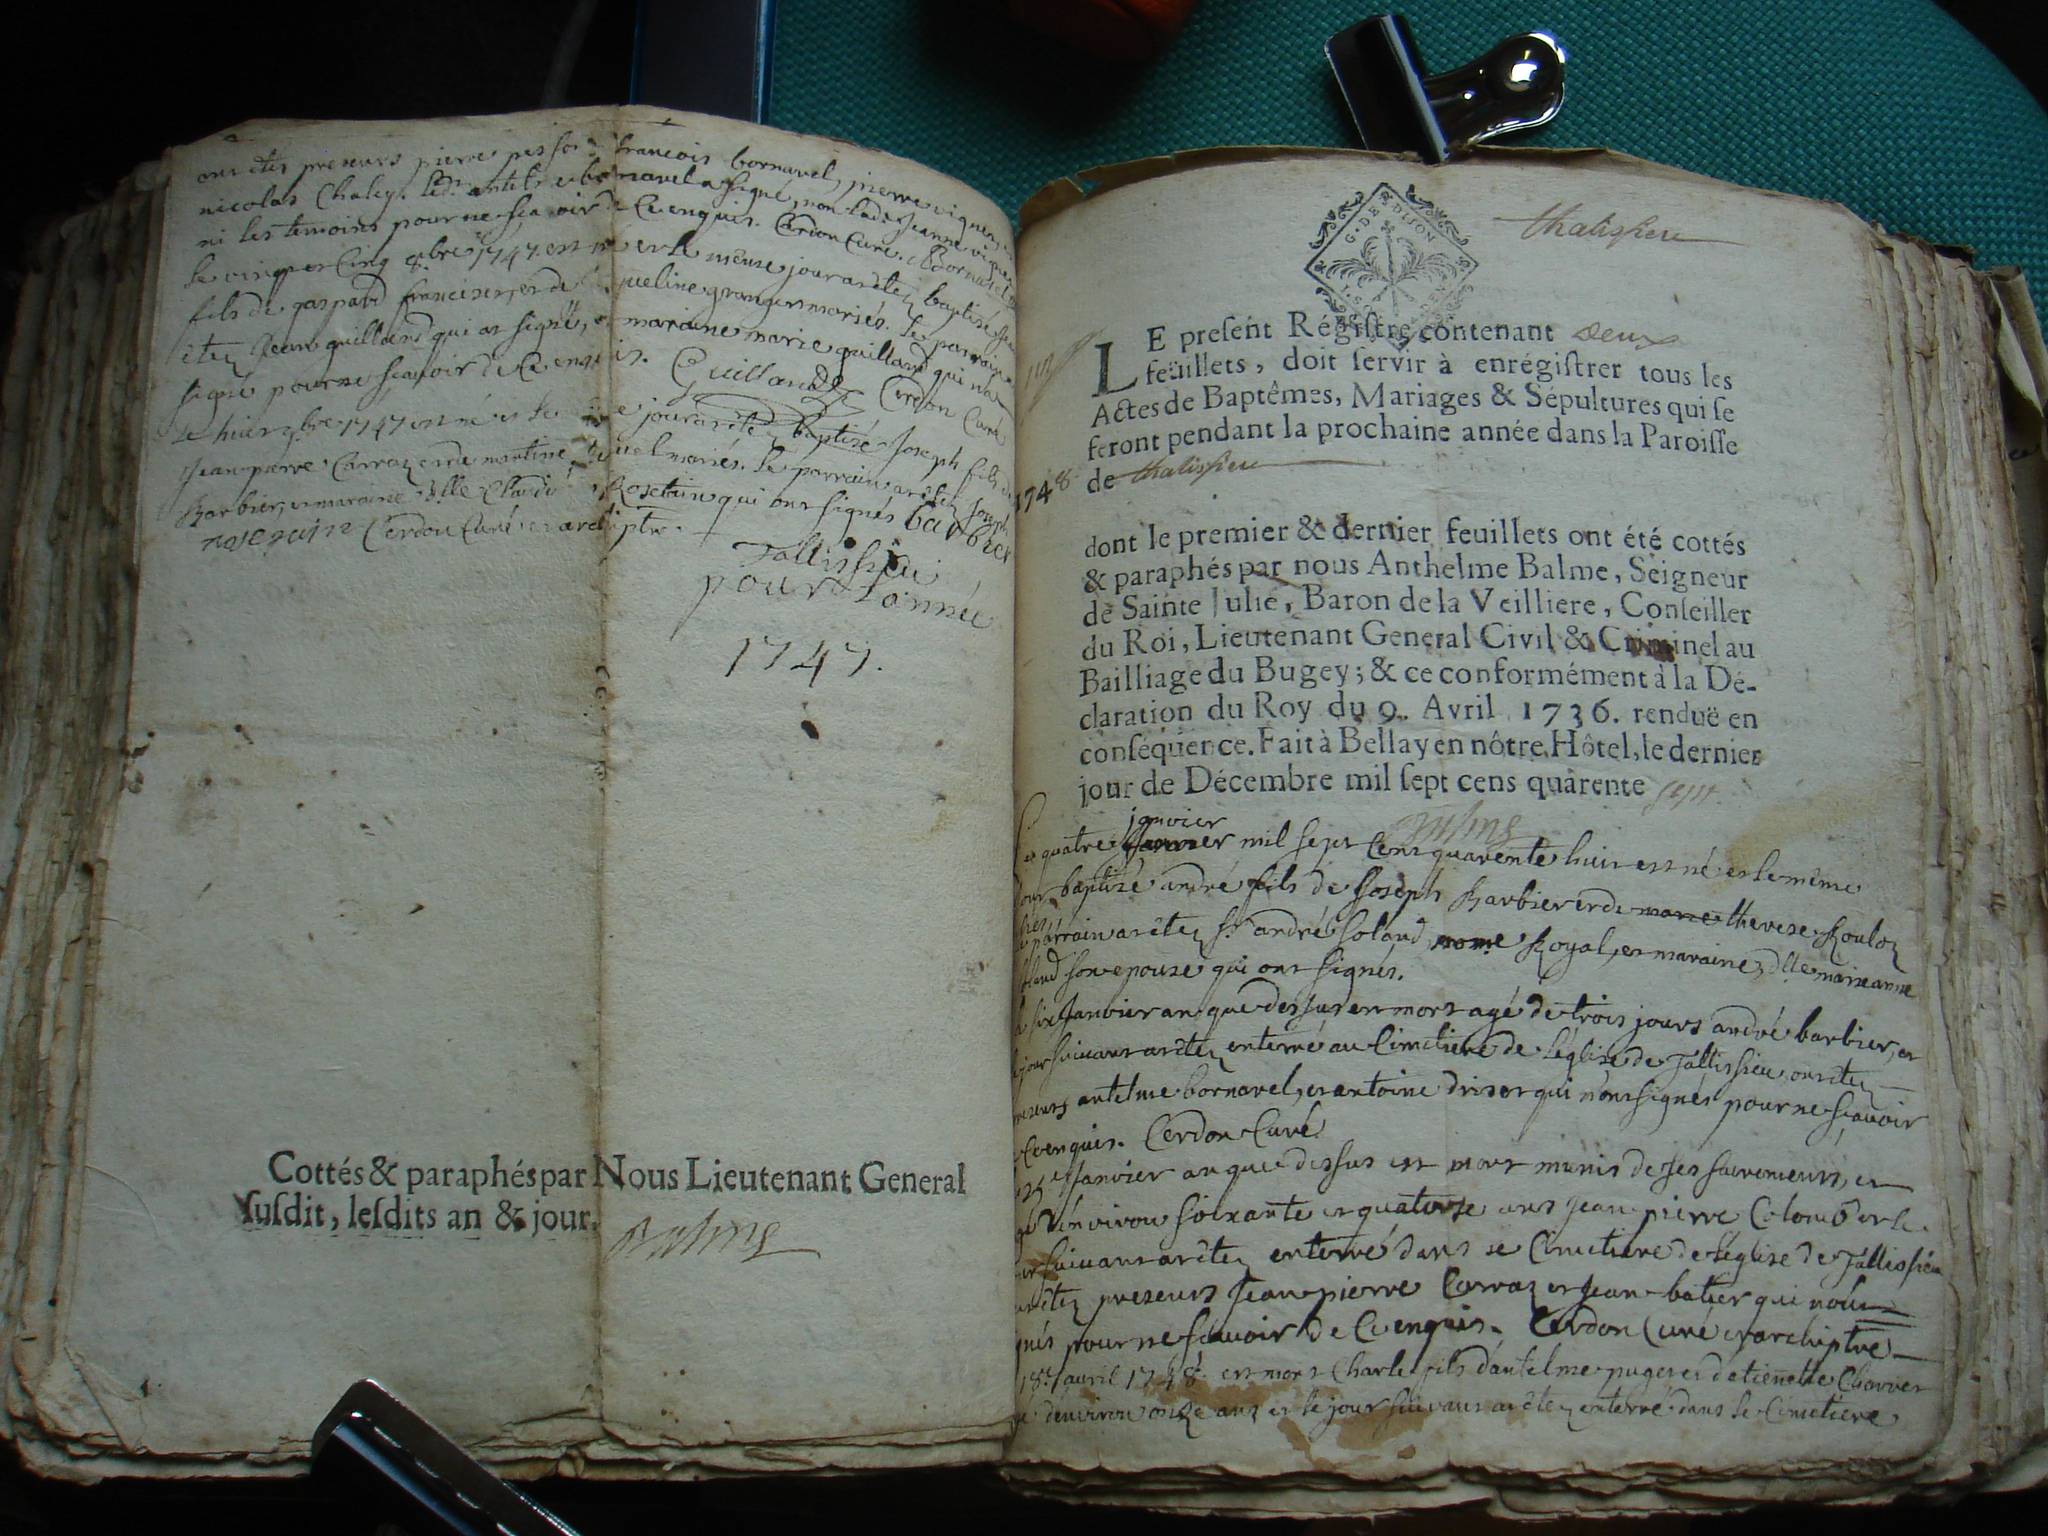 ont étés presents pierre françois bornavel, pierre
nicolas Chaley. led. antel. bornavel a signé, non lade. Jeanne
ni les temoins pour ne sçavoir de ce enquis. Cerdon Curé. Bornavel
le vingt et cinq 8.bre 1747. est né et le même jour a été baptisé
fils de gaspard et de queline granger mariés. le parrain a
été Jean guilland qui at signé, et maraine marie guilland qui n'a
signé pour ne sçavoir de ce enquis. Guilland Cerdon Curé
Le huit 1747 est né et le jour a été baptizé Joseph fils de
Jean pierre Carraz et de martine mariés. le parrain a été Joseph
Barbier, et maraine d.lle Claudi Rosetain qui ont signés barbier
rosetain Cerdon Curé et archiptre.
Tallissieu
pour l'année
1747.
Cottés & paraphés par Nous Lieutenant General
susdit, lesdits an & jour.
Balme
G. DE DIJON
thalissieu
LE present Régistre contenant deux
feüillets, doit servir à enrégistrer tous les
Actes de Baptêmes, Mariages & Sépultures qui se
feront pendant la prochaine année dans la Paroisse
1748.
de thalissieu
dont le premier & dernier feuillets ont été cottés
& paraphés par nous Anthelme Balme, Seigneur
de Sainte Julie, Baron de la Veilliere, Conseiller
du Roi, Lieutenant General Civil & Criminel au
Bailliage du Bugey; & ce conformément à la Dé-
claration du Roy du 9. Avril 1736. renduë en
conséquence. Fait à Bellay en nôtre Hôtel, le dernier
jour de Décembre mil sept cens quarente sept.
Balme
janvier
Le quatre Janvier mil sept Cent quarente huit est né et le même
jour baptizé andré fils de Joseph Barbier et de marie therese Rouloz
parrain a été S.r andré soland Royal, et maraine d.lle marieanne
soland son epouse qui ont signés.
Le six Janvier an que dessus est mort agé de trois jours andré barbier, et
le jour suivant a été enterré au Cimetiere de l'église de Tallissieu ont été
presents antelme bornavel, et antoine drizet qui n'ont signés pour ne sçavoir
de Ce enquis. Cerdon Curé
25.e Janvier an que dessus est mort munis de ses sacrements, et
agé d'environ soixante et quatorze ans Jean pierre Colomb et le
jour suivant a été enterré dans le Cimetiere de l'église de Tallissieu
ont été presents Jean pierre Carraz et Jean batier qui n'ont
signés pour ne sçavoir de Ce enquis. Cerdon Curé et archiptre
18.e avril 1748. est mort Charle fils d'antelme puget et d'etiennette Charvet
agé d'environ onze ans et le jour suivant a été enterré dans le Cimetiere